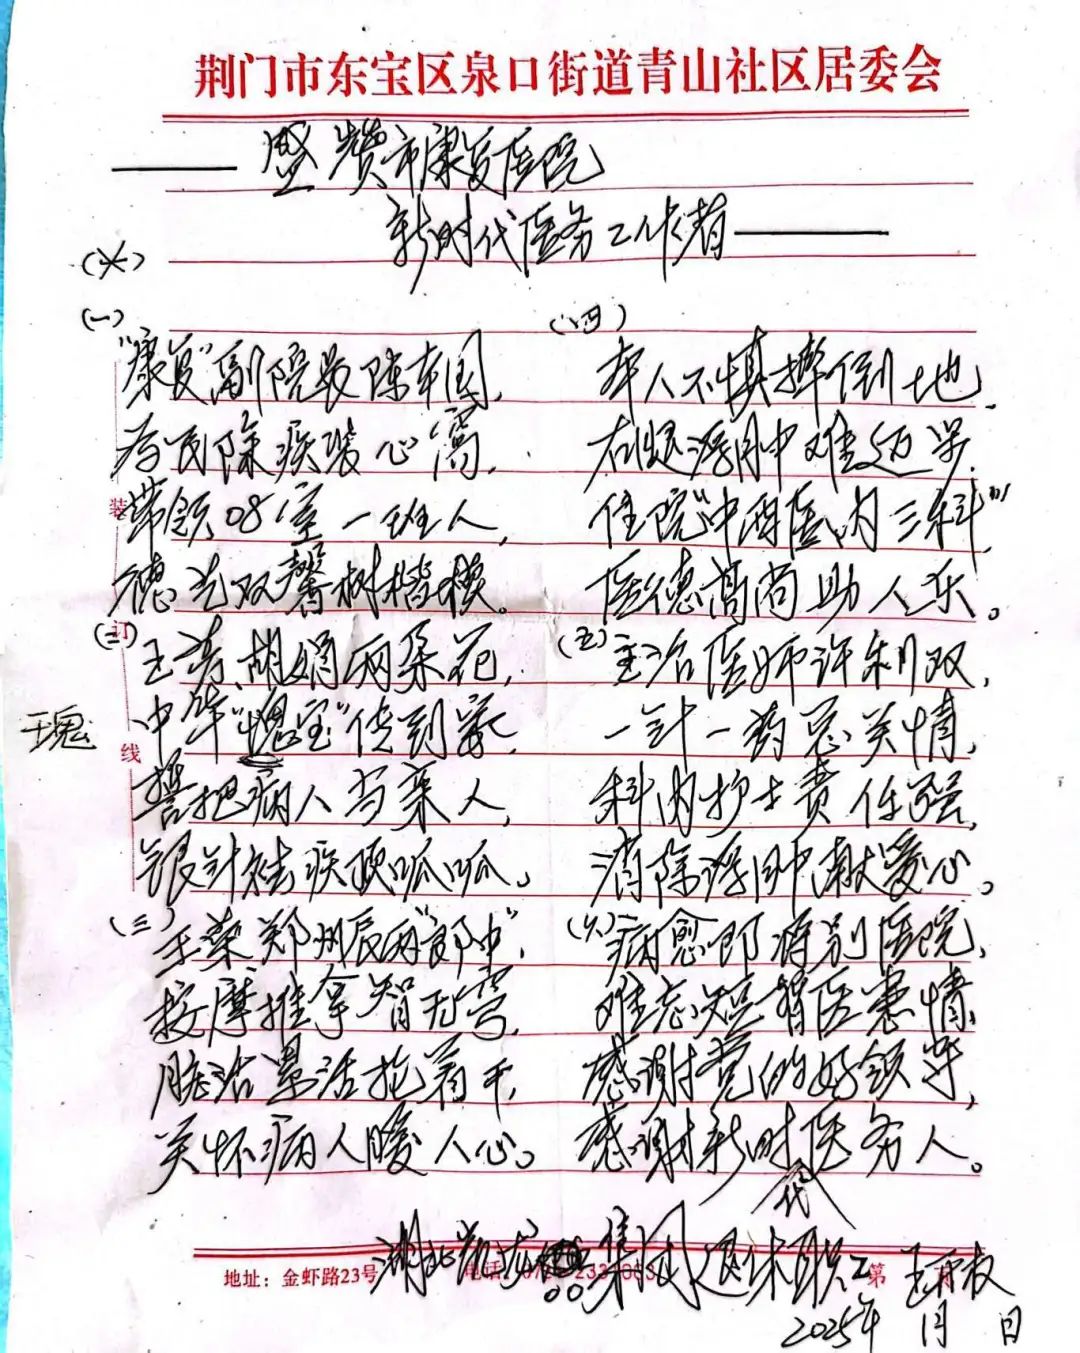 荆门市东宝区泉口街道青山社区居委会
——盛赞市康复医院
新时代医务工作者——
(一)
"康复"副院长陈本国,
为民除疾装心窝,
带领08室一班人,
德艺双馨树楷模。
(二)
王芳、胡娟两朵花,
中华"瑰宝"传到家,
誓把病人当亲人,
银针祛疾顶呱呱。
(三)
王荣郑州辰两"郎中",
按摩推拿智无穷,
脏活累活抢着干,
关怀病人暖人心。
(四)
本人不慎摔倒地,
右腿浮肿中难迈步,
住院"中西医内三科",
医德高尚助人乐。
(五)
主治医师许利双,
一针一药总关情,
科内护士责任强,
消除浮肿献爱心。
(六)
病愈即将别医院,
难忘短暂医患情,
感谢党的好领导,
感谢新时代医务人。
湖北凯龙集团退休职工 王
2025年 月 日
装
订
线
瑰
地址:金虾路23号
电话
第